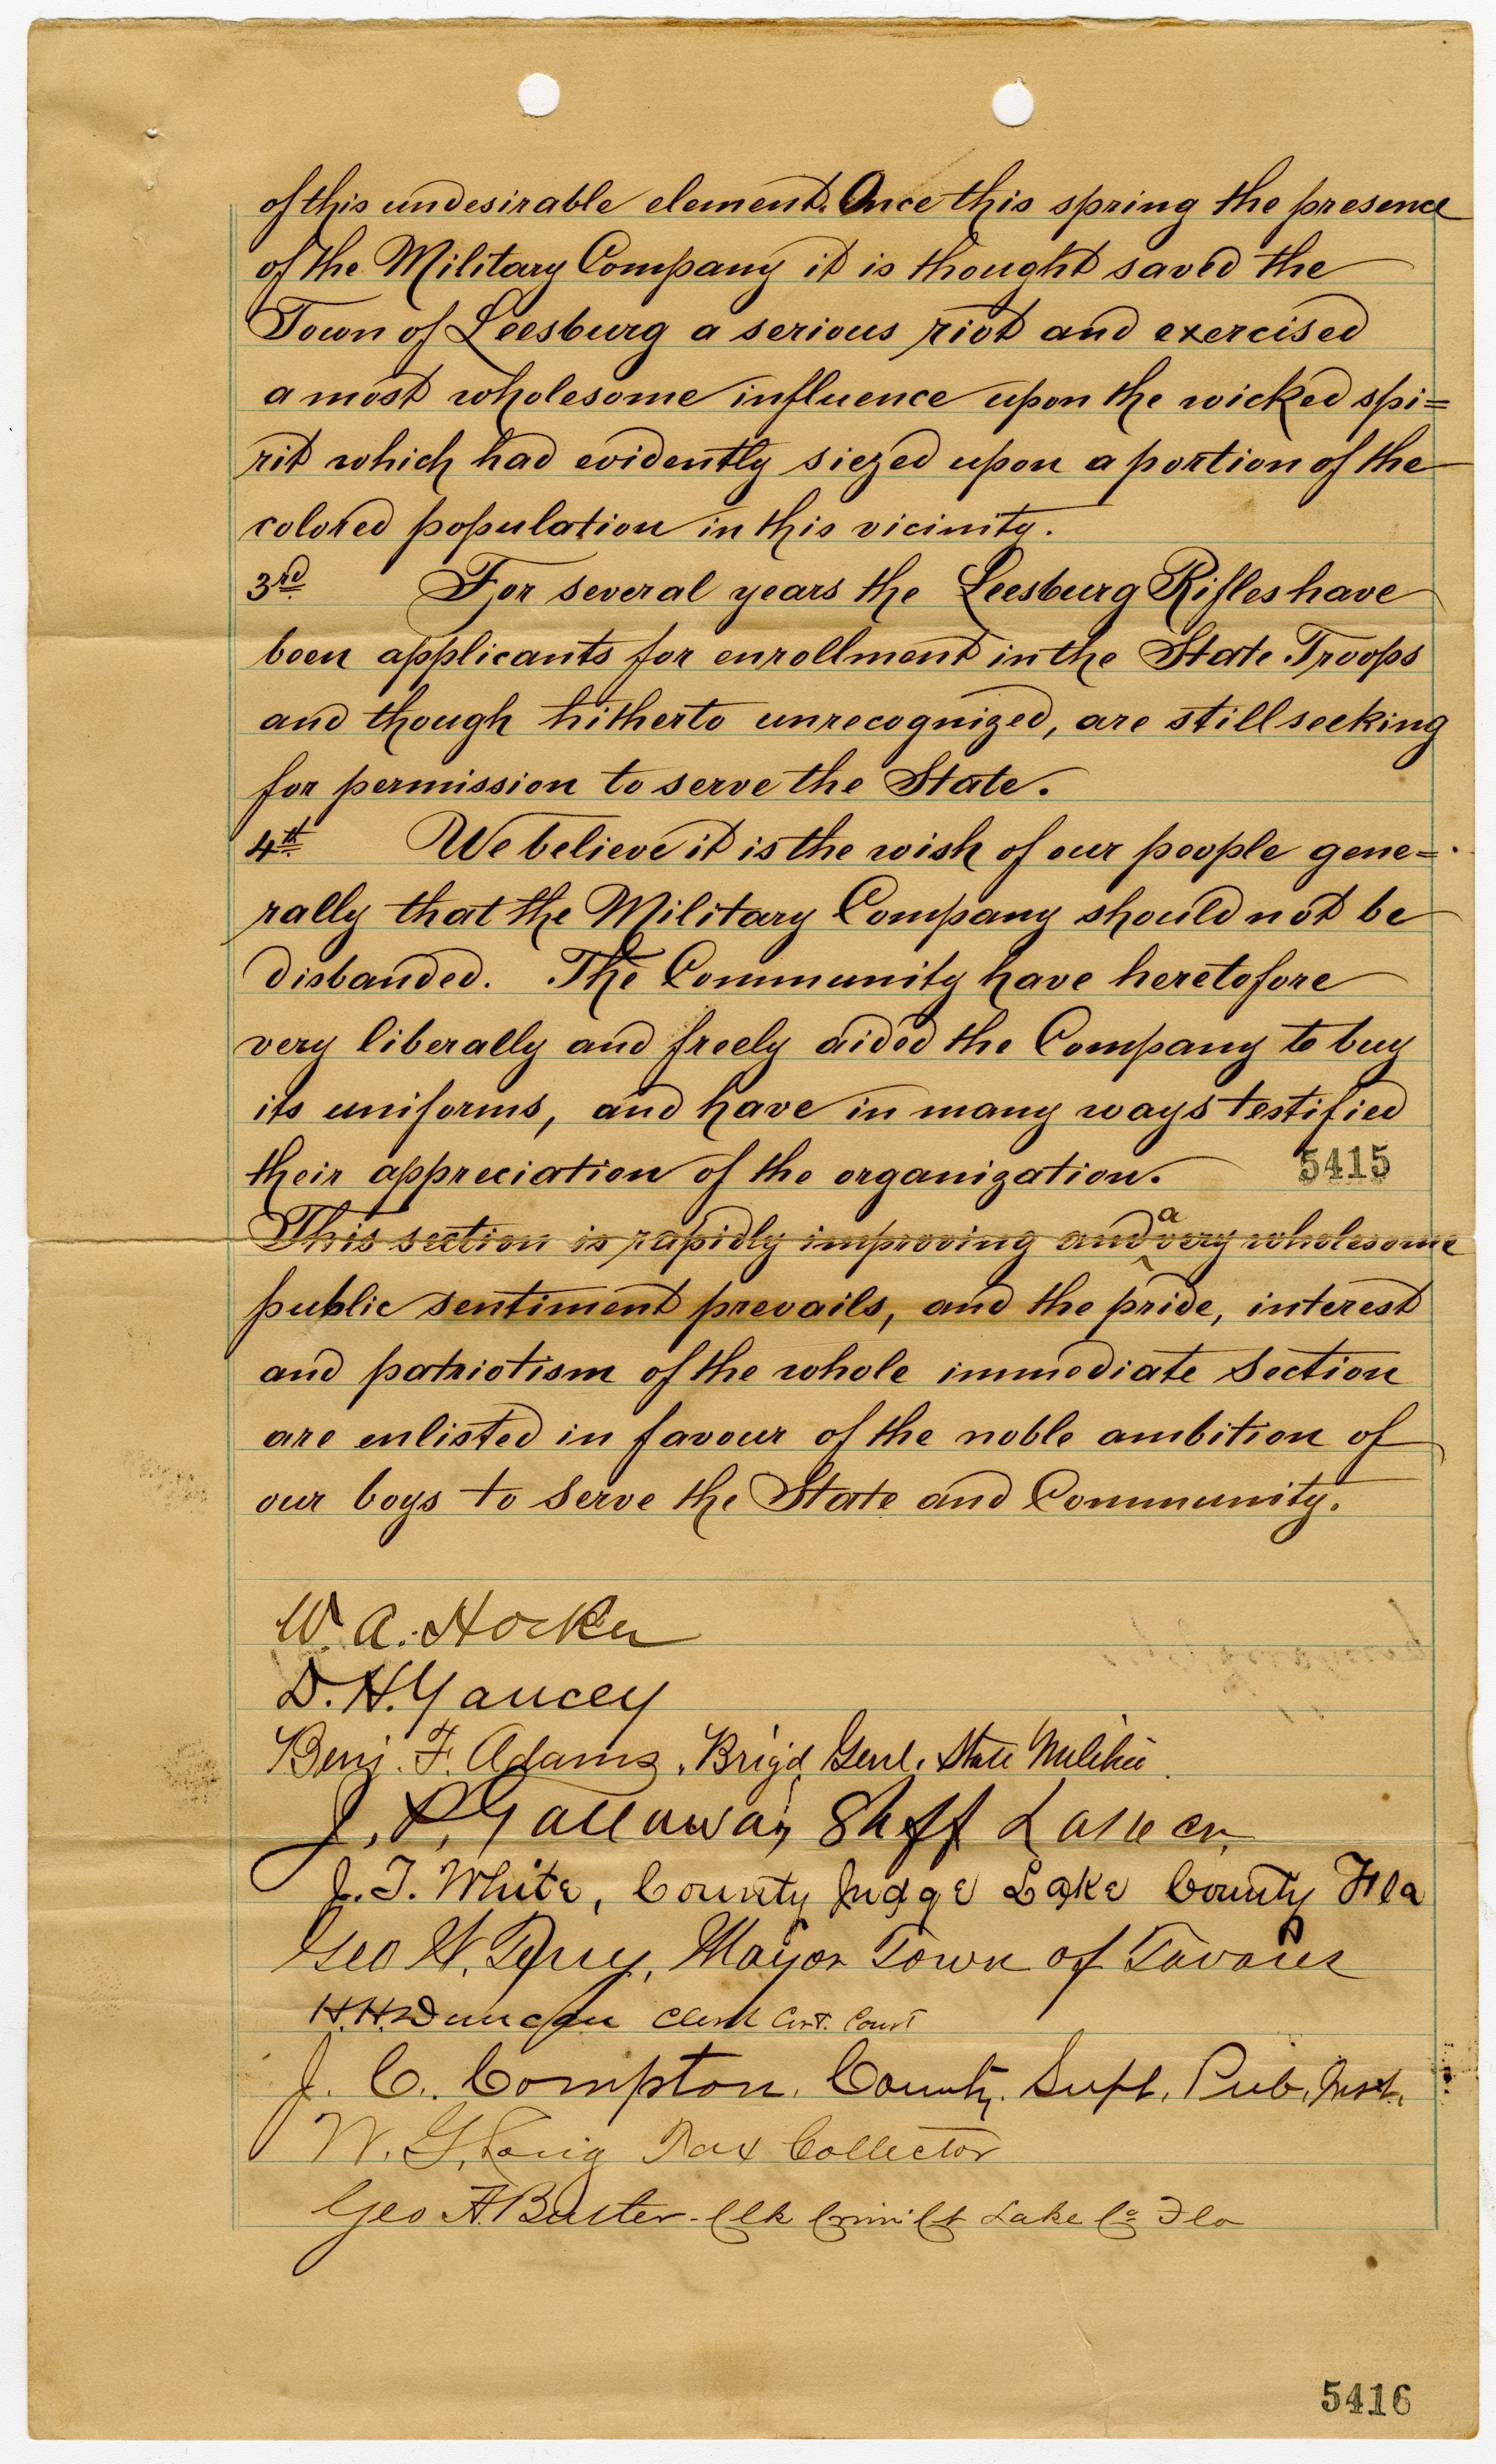 of this undesirable element. Once this spring the presence
of the Military Company it is thought saved the
Town of Leesburg a serious riot and exercised
a most wholesome influence upon the wicked spi=
rit which had evidently siezed upon a portion of the
colored population in this vicinity.
3rd. For several years the Leesburg Rifles have
been applicants for enrollment in the State Troops
and though hitherto unrecognized, are still seeking
for permission to serve the State.
4th. We believe it is the wish of our people gene=
rally that the Military Company should not be
disbanded. The Community have heretofore
very liberally and freely aided the Company to buy
its uniforms, and have in many ways testified
their appreciation of the organization. 5415
This section is rapidly improving and a very wholesome
public sentiment prevails, and the pride, interest
and patriotism of the whole immediate Section
are enlisted in favour of the noble ambition of
our boys to serve the State and Community.
W. A. Hocker
D. H. Yancey
Benj. F. Adams, Brig'd Genl. State Militia.
J. P. Gallaway Shff Lake Co.
J. T. White, County Judge Lake County Fla
Geo W. Mayor Town of Tavares
H. H. Duncan Clerk Cirt. Court
J. C. Compton. County. Supt. Pub. Inst.
W. G. Tax Collector
Geo A. Buster Clk Crim Ct Lake Co Fla
5416